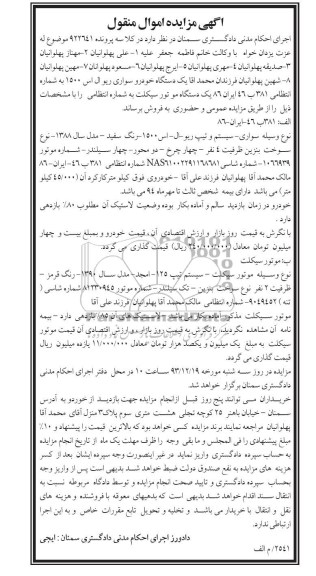 آگهی مزایده اموال منقول
اجرای احکام مدنی دادگستری سمنان در نظر دارد در کلاسه پرونده ۹۲۲۶۴۱ موضوع له
عزت یزدان خواه با وکالت خانم فاطمه جعفر علیه ۱- علی پهلوانیان ۲-مهناز پهلوانیان
۳-صدیقه پهلوانیان ۴-مهری پهلوانیان ۵-ایرج پهلوانیان ۶-مسعود پهلوانیان ۷-مهین پهلوانیان
۸-شهین پهلوانیان فرزندان محمد آقا یک دستگاه خودرو سواری ریو ال اس ۱۵۰۰ به شماره
انتظامی ۳۸۱ ب ۴۶ ایران ۸۶ یک دستگاه مو تور سیکلت به شماره انتظامی را با مشخصات
ذیل را از طریق مزایده عمومی و حضوری به فروش برساند.
الف: ۳۸۱ب ۴۶-ایران-۸۶
نوع وسیله سواری- سیستم و تیپ ریو-ال-اس۱۵۰۰-رنگ سفید - مدل سال ۱۳۸۸-نوع
سوخت بنزین ظرفیت ۴ نفر - چهار چرخ - دو محور- چهار سیلندر- شماره موتور
۱۰۶۶۹۳۹- شماره شاسی NAS۲۱۰۰۲۲۹۱۱۶۸۶۸۱ شماره انتظامی ۳۸۱ ب ۴۶-ایران-۸۶
مالک محمد آقا پهلوانیان فرزند علی آقا -خودروی فوق کیلو مترکارکرد آن (۴۵/۰۰۰ کیلو
متر) می باشد دارای بیمه شخص ثالث تا مهرماه ۹۴ می باشد.
خودرو در زمان بازدید سالم و آماده بکار بوده وضعیت لاستیک آن مطلوب ۸۰٪ بازدهی
دارد .
با نگرش به قیمت روز بازار و ارزش اقتصادی آن، قیمت خودرو و بمبلغ بیست و چهار
میلیون تومان معادل (۲۴۰/۰۰۰/۰۰۰ ریال) قیمت گذاری می گردد.
ب: موتور سیکلت
نوع وسیله موتور سیکلت - سیستم تیپ ۱۲۵ -امجد- مدل سال ۱۳۹۰-رنگ قرمز -
ظرفیت ۲ نفر نوع سوخت بنزین - تک سیلندر- شماره موتور ۸۱۲۳۰۹۴۵ شماره شاسی (
تنه ) ۹۰۴۹۴۵۲- شماره انتظامی مالک محمد آقا پهلوانیان- فرزند علی آقا
موتور سیکلت مذکور آماده بکار می باشد - لاستیک های آن ۸۵٪ بازدهی دارد - بیمه
نامه آن مشاهده نگردید، با نگرش به قیمت روز بازار و ارزش اقتصادی آن قیمت موتور
سیکلت به مبلغ یک میلیون و یکصد هزار تومان معادل ۱۱/۰۰۰/۰۰۰ یازده میلیون ریال
قیمت گذاری می گردد.
مزایده در روز سه شنبه مورخه ۹۳/۱۲/۱۹ ساعت ۱۰ در محل دفتر اجرای احکام مدنی
دادگستری سمنان برگزار خواهد شد.
خریداران می توانند پنج روز قبل از انجام مزایده جهت بازدید از خودرو به آدرس
سمنان - خیابان باهنر ۲۵ کوچه تجلی هشت متری سوم پلاک۳ منزل آقای محمد آقا
پهلوانیان مراجعه نمایند برنده مزایده کسی خواهد بود که بالاترین قیمت را پیشنهاد و ۱۰٪
مبلغ پیشنهادی را فی المجلس و ما بقی وجه را ظرف مهلت یک ماه از تاریخ انجام مزایده
به حساب سپرده دادگستری واریز نماید در غیر اینصورت وجه سپرده ایشان بعد از کسر
هزینه های مزایده به نفع صندوق دولت ضبط خواهد شد بدیهی است پس از واریز وجه
بحساب سپرده دادگستری و تایید صحت انجام مزایده و توسط دادگاه مربوطه نسبت به
انتقال سند اقدام خواهد شد بدیهی است که بدهیهای معوقه با فروشنده و هزینه های
نقل و انتقال با خریدار می باشد و تخلیه و تحویل تابع مقررات خاص و به این اجرا
ارتباطی ندارد.
دادورز اجرای احکام مدنی دادگستری سمنان : ایجی
۲۵۴۱/ م الف